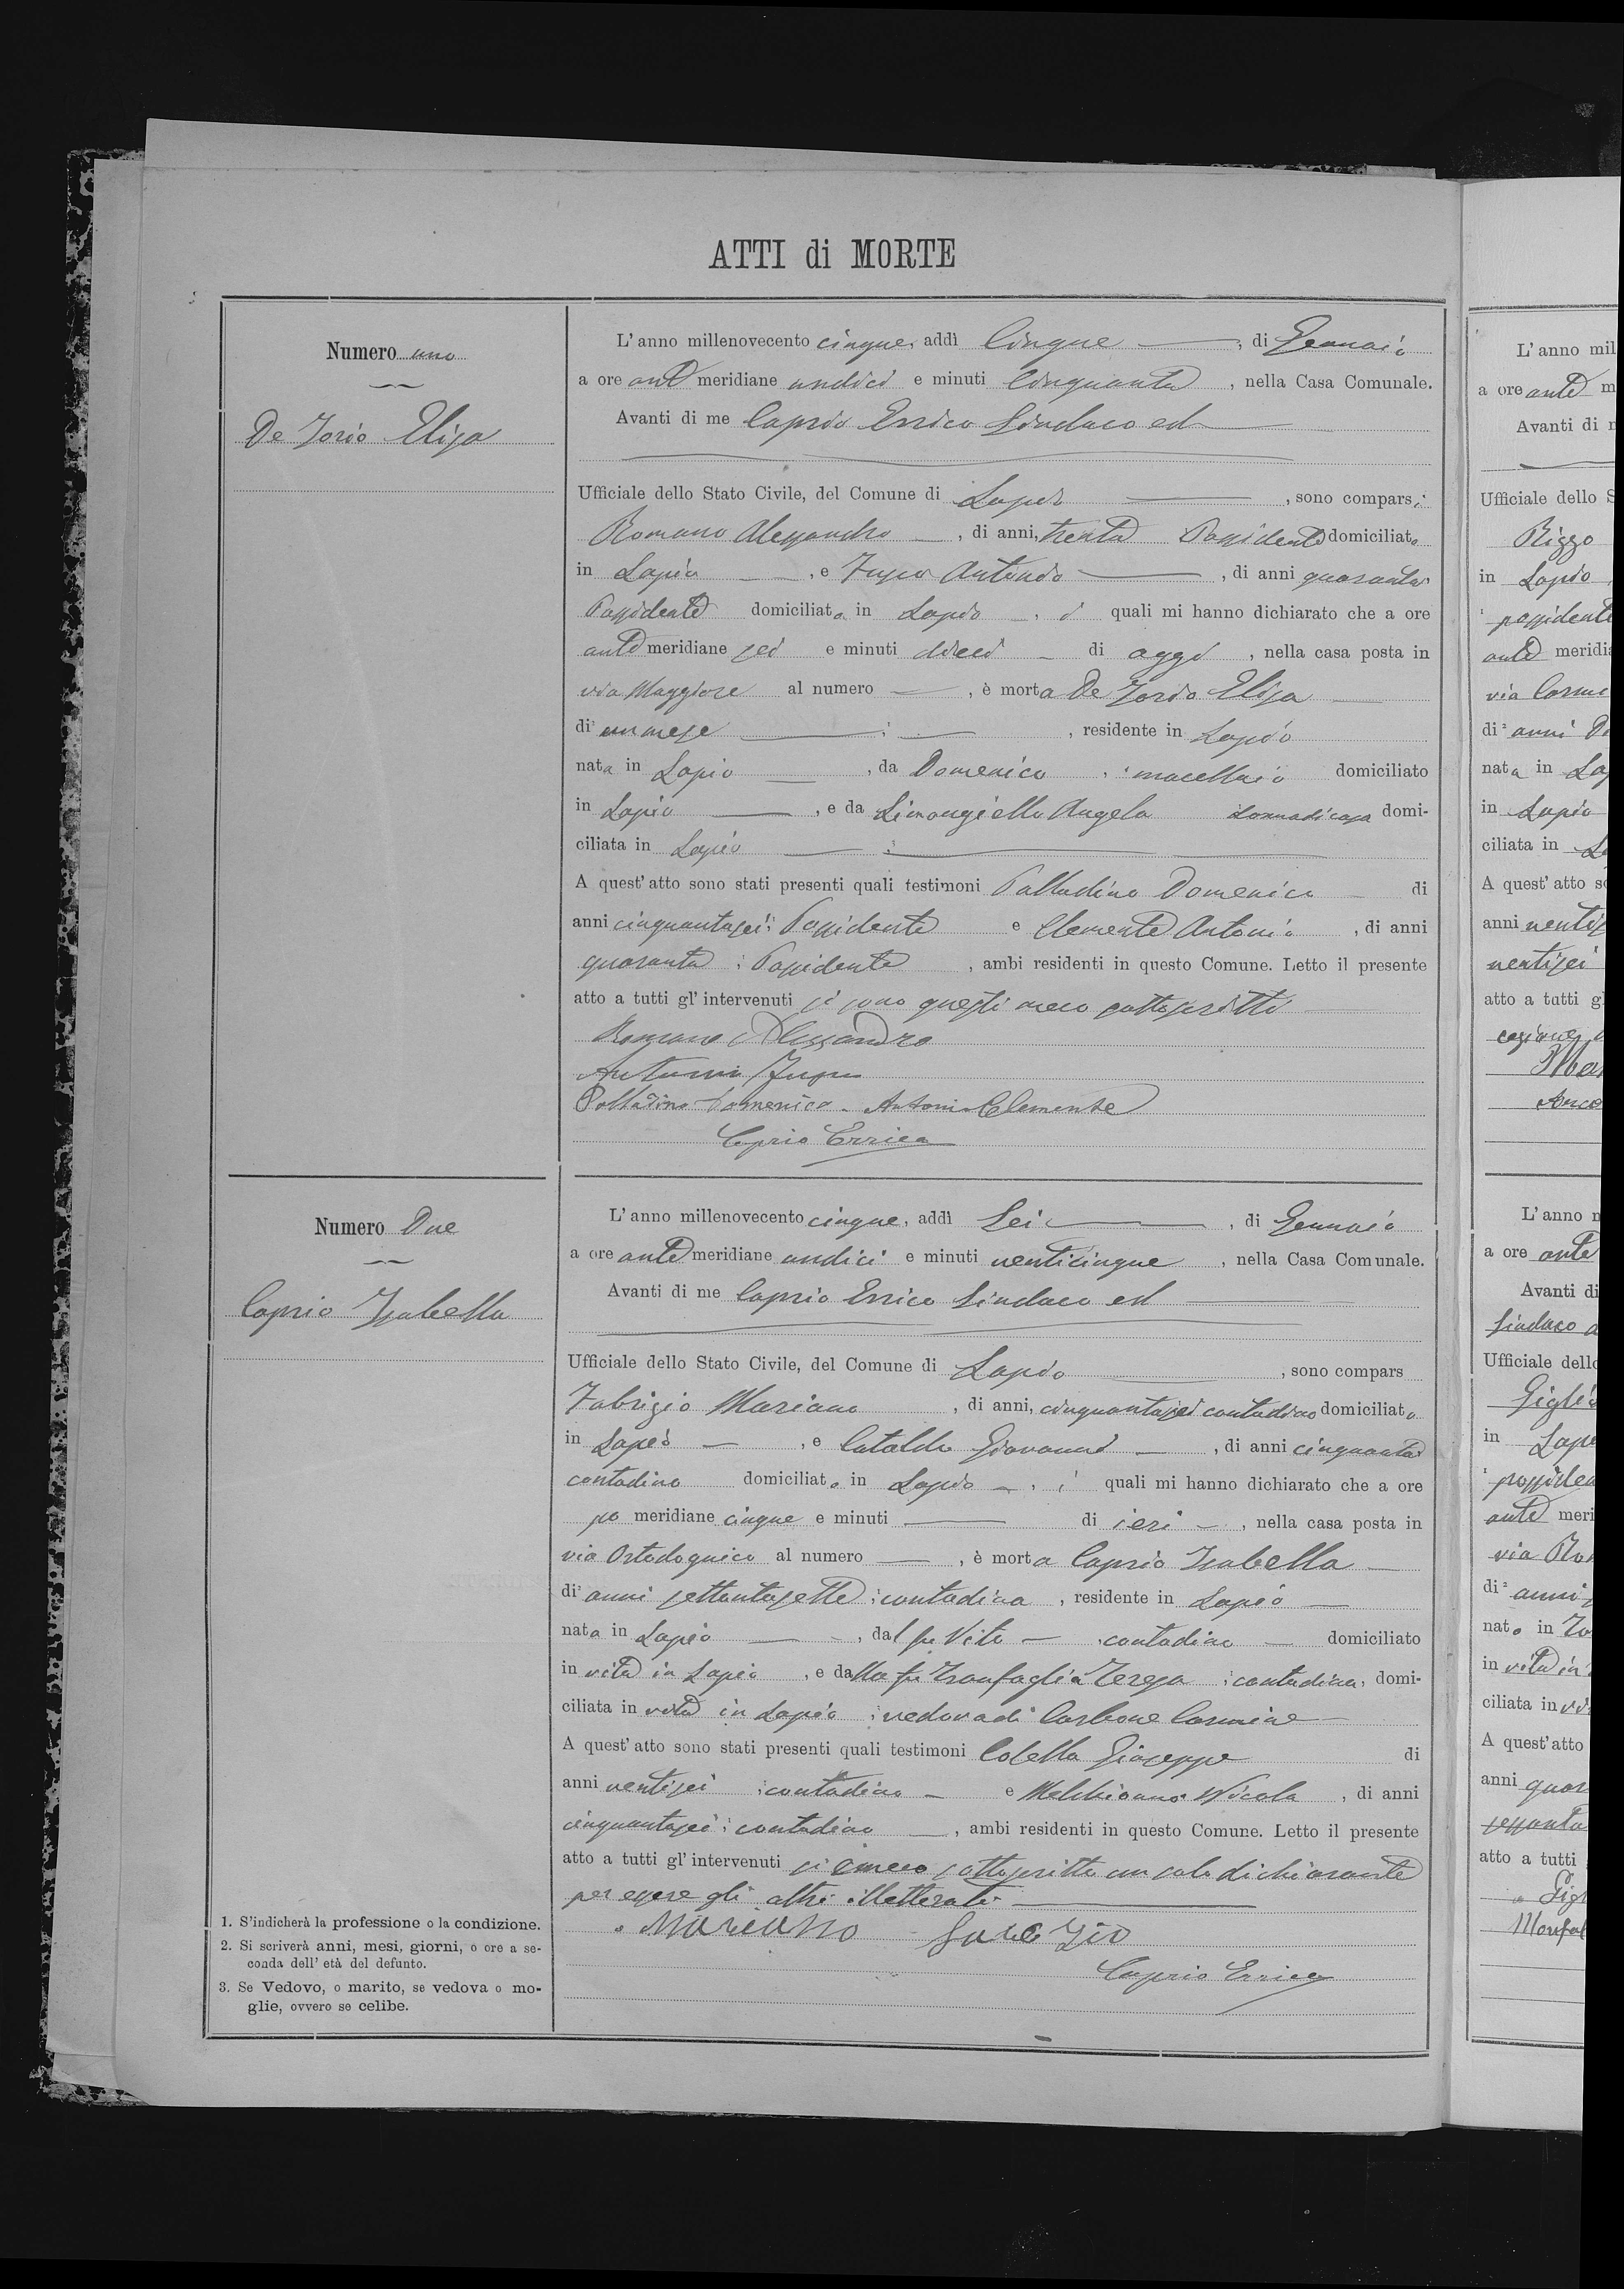 ATTI di MORTE
Numero uno
De Iorio Elisa
L'anno millenovecento cinque, addì Cinque, di Gennaio
a ore ante meridiane undici e minuti Cinquanta, nella Casa Comunale.
Avanti di me Caprio Errico Sindaco ed
Ufficiale dello Stato Civile, del Comune di Lapio, sono comparsi
Romano Alessandro, di anni, trenta Possidente domiciliato
in Lapio, e Antonio, di anni quaranta
Possidente domiciliato in Lapio, i quali mi hanno dichiarato che a ore
ante meridiane sei e minuti dieci di oggi, nella casa posta in
via Maggiore al numero, è morta De Iorio Elisa
di un mese, residente in Lapio
nata in Lapio, da Domenico, macellaio domiciliato
in Lapio, e da Limongiello Angela donna di casa domi-
ciliata in Lapio
A quest'atto sono stati presenti quali testimoni Palladino Domenico di
anni cinquantasei Possidente e Clemente Antonio, di anni
quaranta Possidente, ambi residenti in questo Comune. Letto il presente
atto a tutti gl'intervenuti si sono questi meco sottoscritti
Romano Alessandro
Antonio
Palladino Domenico. Antonio Clemente
Caprio Errico
Numero Due
Caprio Isabella
L'anno millenovecento cinque, addì Sei, di Gennaio
a ore ante meridiane undici e minuti venticinque, nella Casa Comunale.
Avanti di me Caprio Errico Sindaco ed
Ufficiale dello Stato Civile, del Comune di Lapio, sono compars
Fabrizio Mariano, di anni, cinquantasei contadino domiciliato
in Lapio, e Cataldo Giovanni, di anni cinquanta
contadino domiciliato in Lapio, i quali mi hanno dichiarato che a ore
po meridiane cinque e minuti di ieri, nella casa posta in
via al numero, è morta Caprio Isabella
di anni settantasette contadina, residente in Lapio
nata in Lapio, dal fu Vito contadino domiciliato
in vita in Lapio, e dalla fu Tranfaglia Teresa contadina, domi-
ciliata in vita in Lapio vedova di Carbone Carmine
A quest'atto sono stati presenti quali testimoni Colella Giuseppe di
anni ventisei contadino e Melchionno Nicola, di anni
cinquantasei contadino, ambi residenti in questo Comune. Letto il presente
atto a tutti gl'intervenuti si è meco sottoscritto un solo dichiarante
per essere gli altri illetterati
Mariano Fabrizio
Caprio Errico
1. S'indicherà la professione o la condizione.
2. Si scriverà anni, mesi, giorni, o ore a se-
conda dell'età del defunto.
3. Se Vedovo, o marito, se vedova o mo-
glie, ovvero se celibe.
L'anno mil
a ore ante m
Avanti di m
Ufficiale dello S
Rizzo
in Lapio
possidente
ante meridia
via Carmi
di anni
nata in Lap
in Lapio
ciliata in
A quest'atto so
anni ventis
ventisei
atto a tutti g
L'anno n
a ore ante
Avanti di
Sindaco
Ufficiale dello
in Lapi
possiden
ante meri
via
di anni
nato in
in vita in
ciliata in vi
A quest'atto
anni quar
sessanta
atto a tutti